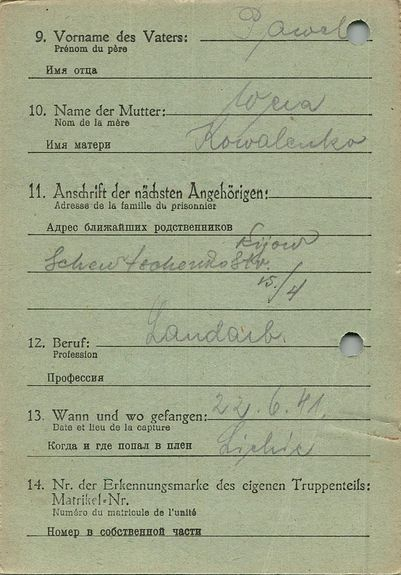 9. Vorname des Vaters: Pawel
Prénom du père
Имя отца
10. Name der Mutter: Wera
Nom de la mère
Kowalenko
Имя матери
11. Anschrift der nächsten Angehörigen:
Adresse de la famille du prisonnier
Адрес ближайших родственников
Kijow
Schewtschenko Str.
15/4
12. Beruf: Landarb.
Profession
Профессия
13. Wann und wo gefangen: 22.6.41.
Date et lieu de la capture
Когда и где попал в плен
14. Nr. der Erkennungsmarke des eigenen Truppenteils:
Matrikel-Nr.
Numéro du matricule de l'unité
Номер в собственной части